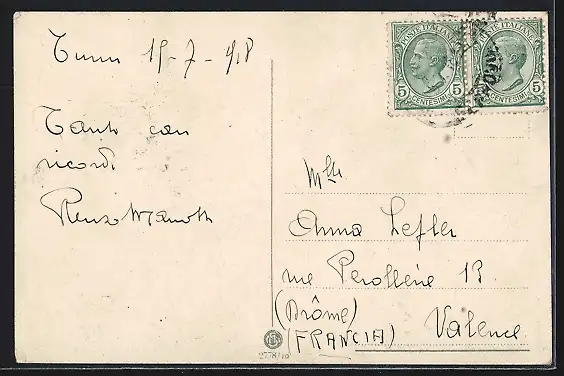 15-7-918
Tanti cari
ricordi
Renzo
POSTE ITALIANE
5 CENTESIMI 5
POSTE ITALIANE
CENTESIMI 5
Mlle
Anna Lefler
rue Perollerie 13
(Drôme)
Valence
(FRANCIA)